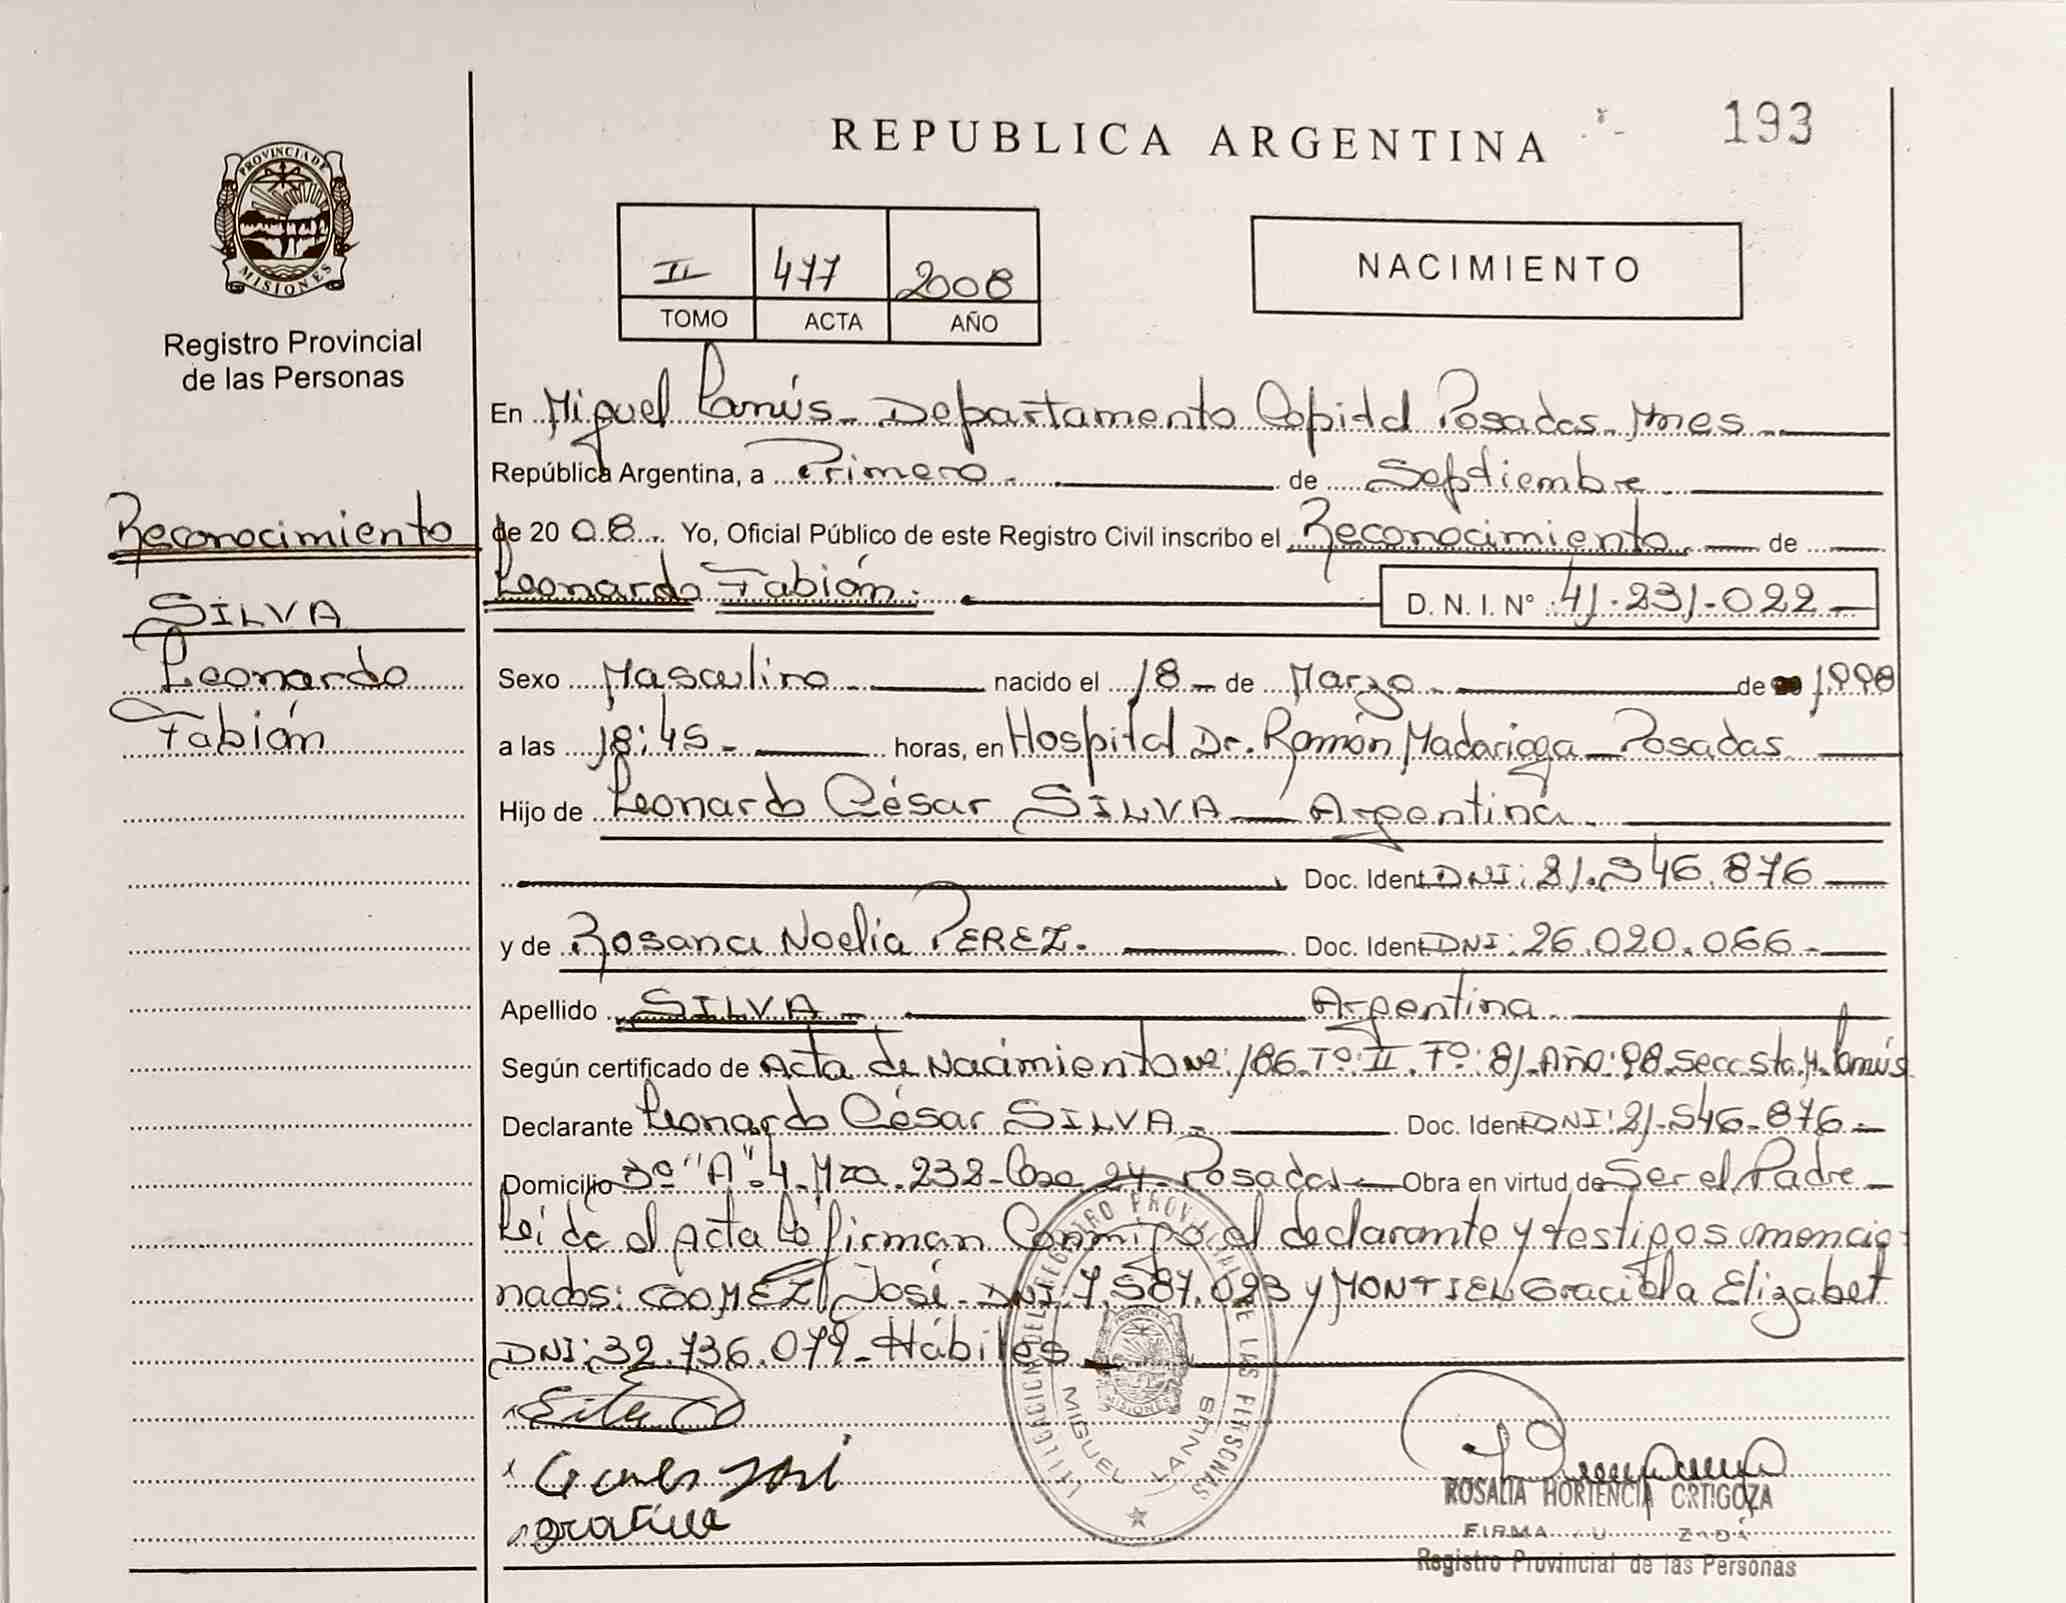 REPUBLICA ARGENTINA
193
PROVINCIA DE
MISIONES
Registro Provincial
de las Personas
II 477 2008
TOMO ACTA AÑO
NACIMIENTO
En Miguel Lanús - Departamento Capital Posadas - Mnes
República Argentina, a Primero de Septiembre
de 2008. Yo, Oficial Público de este Registro Civil inscribo el Reconocimiento de
Leonardo Fabián. D. N. I. Nº 41.231.022
Reconocimiento
SILVA
Leonardo
Fabián
Sexo Masculino nacido el 18 - de Marzo de 1998
a las 18:45 - horas, en Hospital Dr. Ramón Madariaga - Posadas
Hijo de Leonardo César SILVA - Argentina
Doc. Ident. DNI: 21.546.876
y de Rosana Noelia PEREZ. Doc. Ident. DNI: 26.020.066
Apellido SILVA - Argentina
Según certificado de Acta de Nacimiento Nº: 186. Tº: II. Fº: 81. Año: 98. Secc. Sta. M. Lanús
Declarante Leonardo César SILVA - Doc. Ident. DNI: 21.546.876
Domicilio Bº "A" 4 - Mza. 232 - Casa 24 - Posadas - Obra en virtud de Ser el Padre
Leída el Acta la firman Conmigo el declarante y testigos mencio-
nados: GOMEZ José - DNI: 7.587.023 y MONTIEL Graciela Elizabet
DNI: 32.736.079 - Hábiles
DEL REGISTRO PROVINCIAL DE LAS PERSONAS
MIGUEL LANUS
MISIONES
ROSALIA HORTENCIA ORTIGOZA
FIRMA
Registro Provincial de las Personas